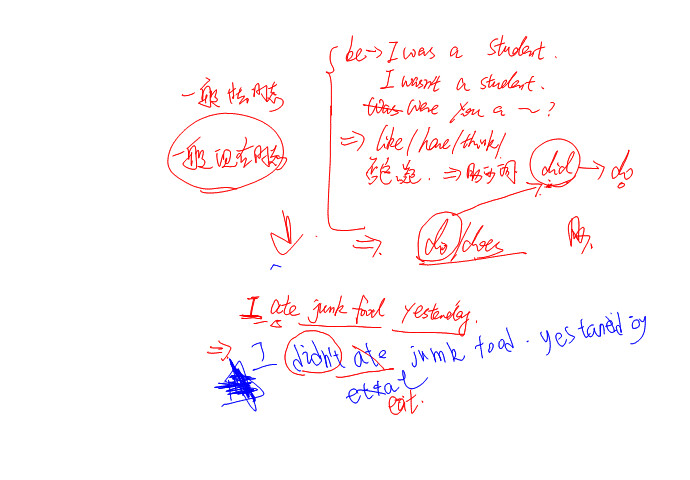 be → I was a student.
I wasn't a student.
一般过去时态
Was Were you a ~ ?
⇒ like / have / think /
一般现在时态
否定 ⇒ 助动词 did → do
⇒ do / does 助.
I ate junk food yesterday.
⇒ I didn't ate junk food. yestaredidoy
eat.